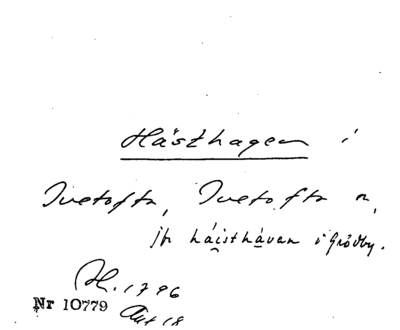 Hästhagen i
Ivetofta, Ivetofta n,
jfr háisthávan i Grödby.
H. 1796
Nr 10779 Akt 18